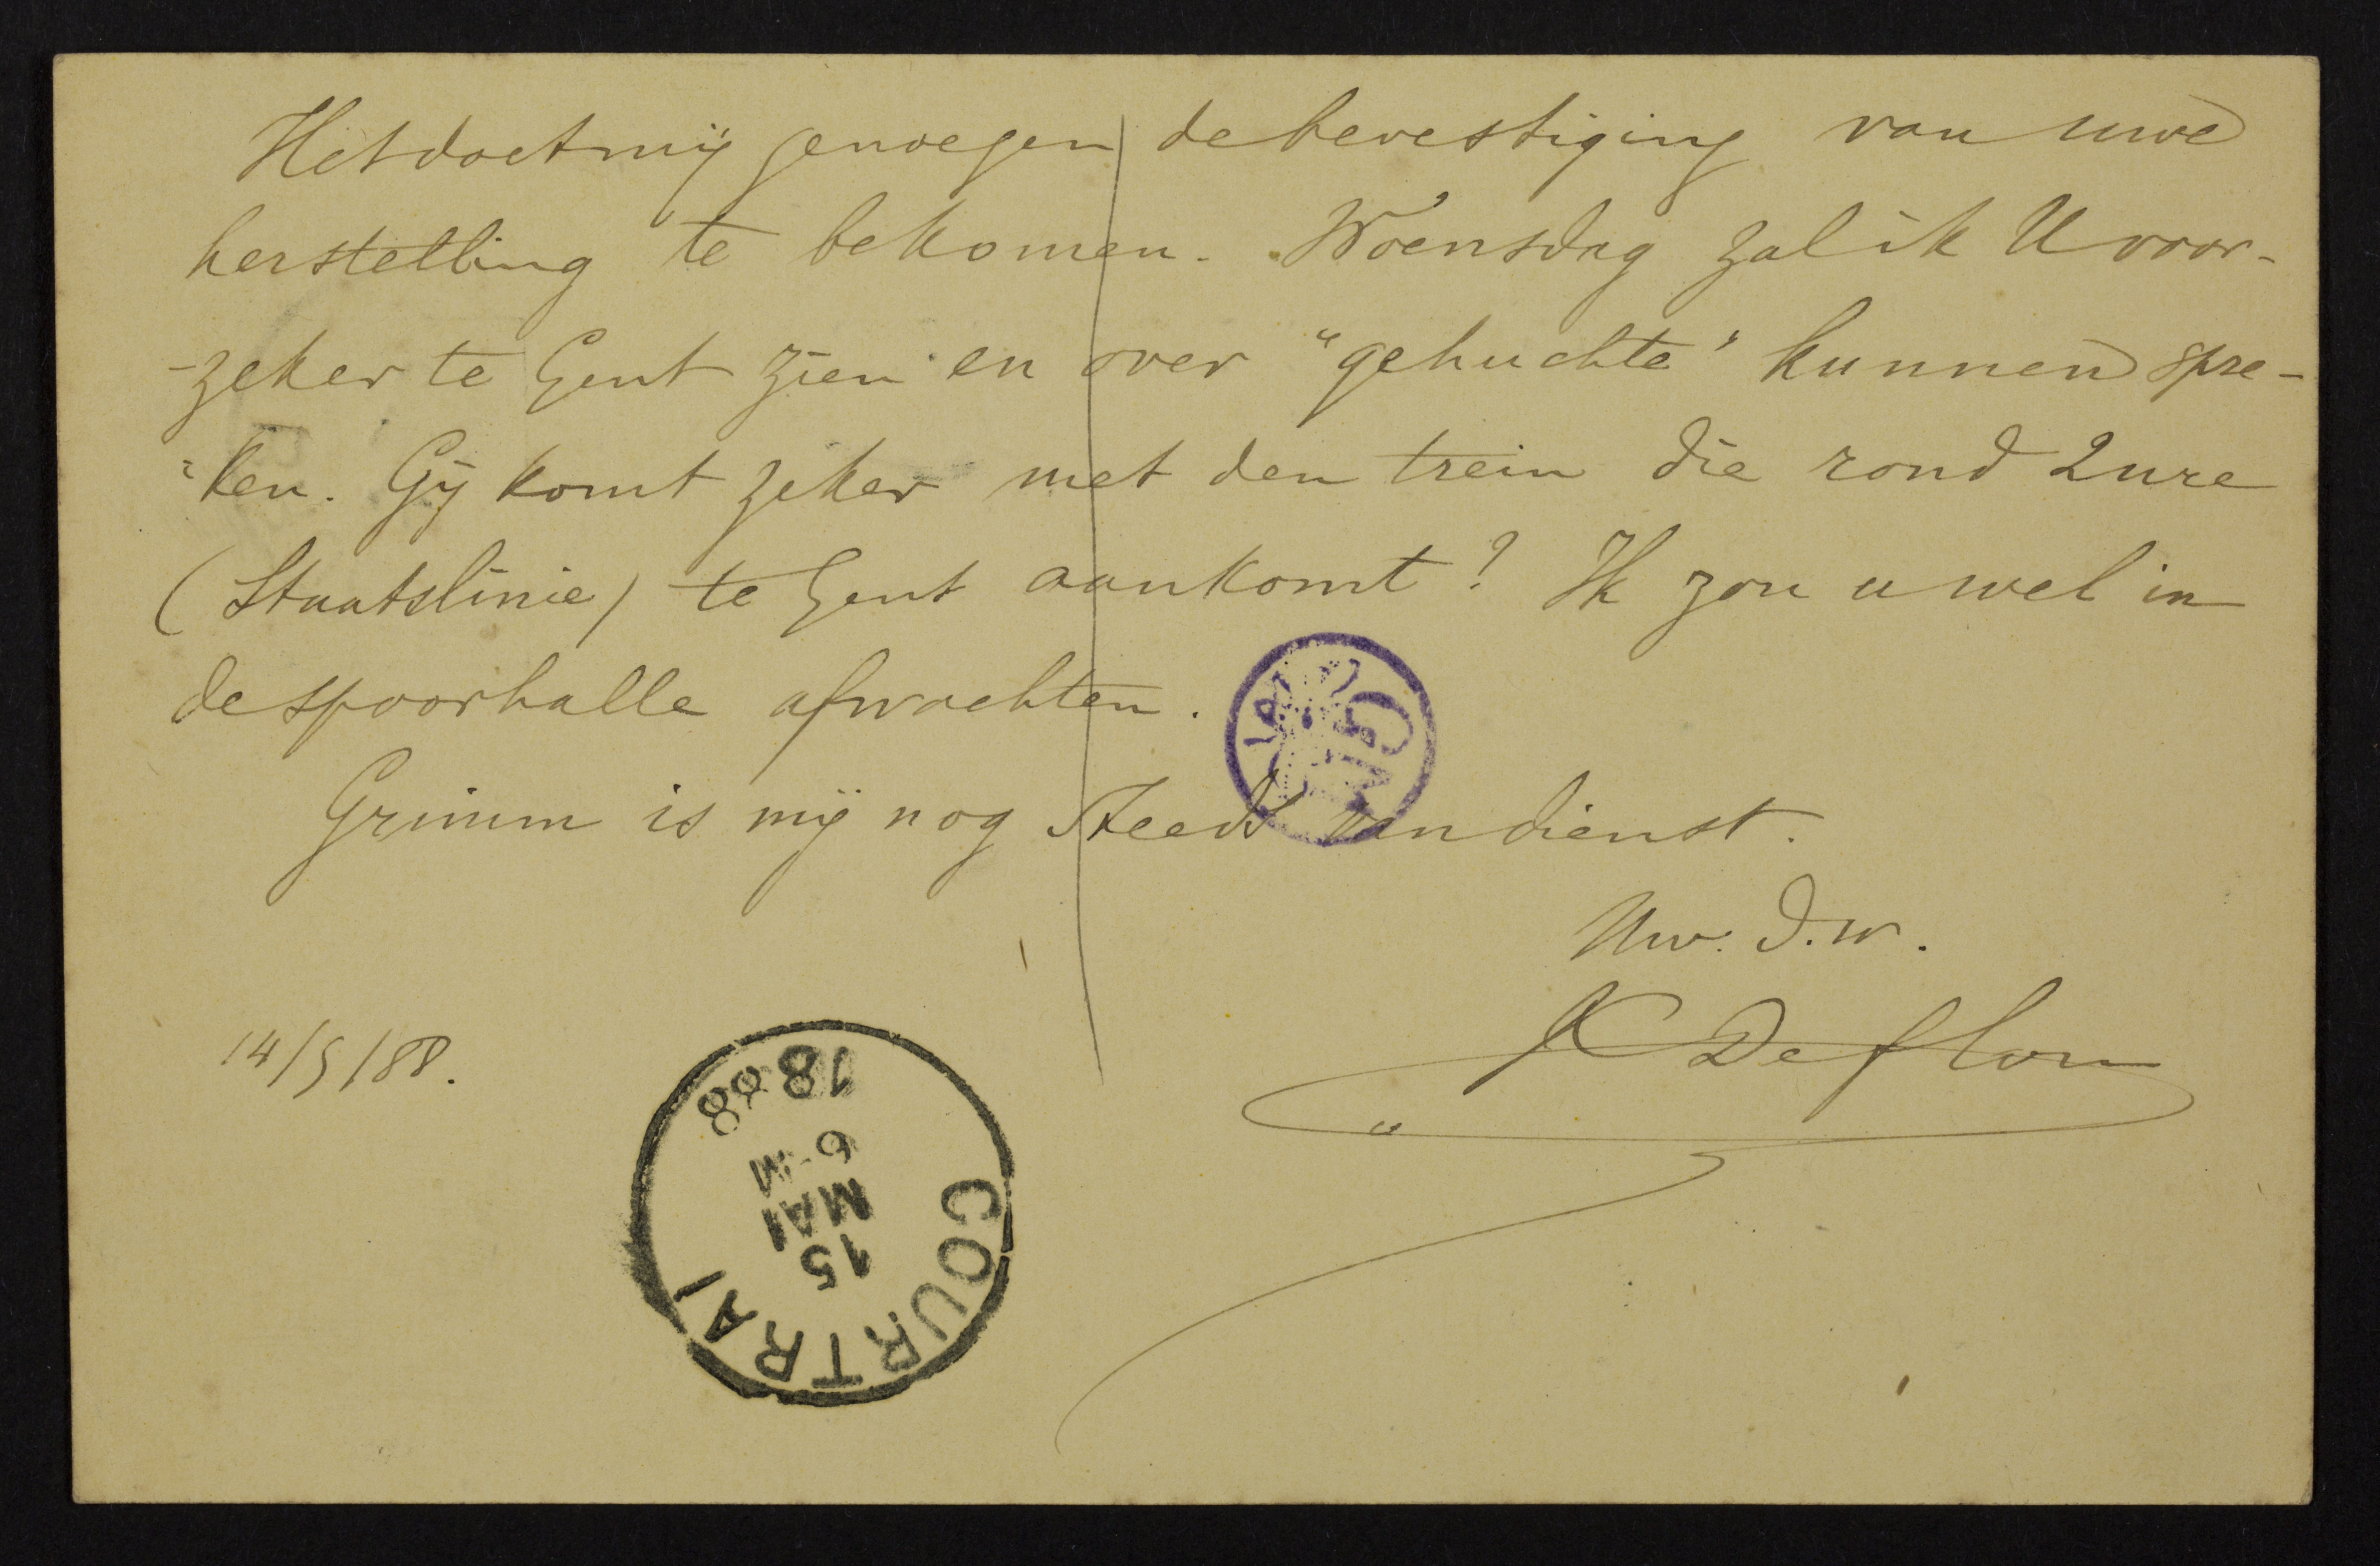 Het doet mij genoegen de bevestiging van uwe
herstelling te bekomen. Woensdag zal ik U voor-
-zeker te Gent zien en over "gehuchte" kunnen spre-
-ken. Gij komt zeker met den trein die rond 2 ure
(Staatslinie) te Gent aankomt? Ik zou u wel in
de spoorhalle afwachten.
Grimm is mij nog steeds van dienst.
Uw. d.w.
K Deflou
14/5/88.
COURTRAI
15
MAI
6-M
1888